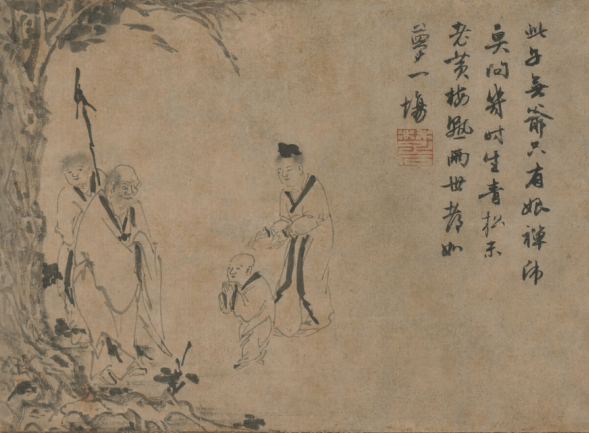 此子無爺只有娘禪師
莫問幾時生青松未
老黃梅熟兩世都如
夢一場